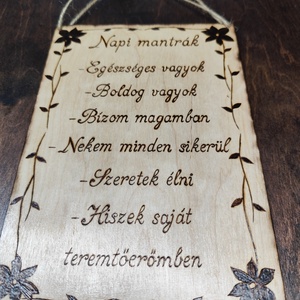 Napi mantrák
-Egészséges vagyok
-Boldog vagyok
-Bízom magamban
-Nekem minden sikerül
-Szeretek élni
-Hiszek saját
teremtőerőmben